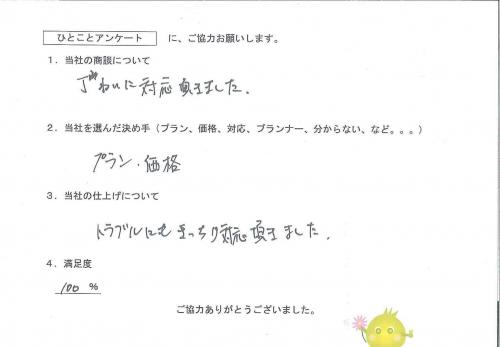 ひとことアンケート に、ご協力お願いします。
1．当社の商談について
丁ねいに対応頂きました。
2．当社を選んだ決め手（プラン、価格、対応、プランナー、分からない、など。。。）
プラン・価格
3．当社の仕上げについて
トラブルにもきっちり対応頂きました。
4．満足度
100 %
ご協力ありがとうございました。